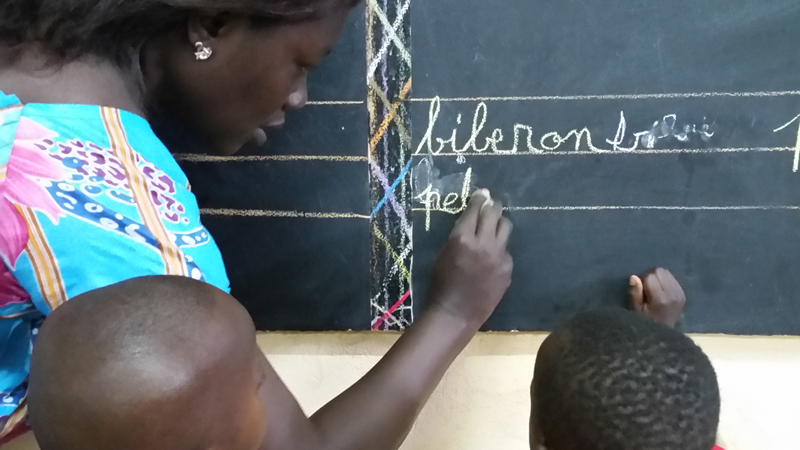 biberon
pel